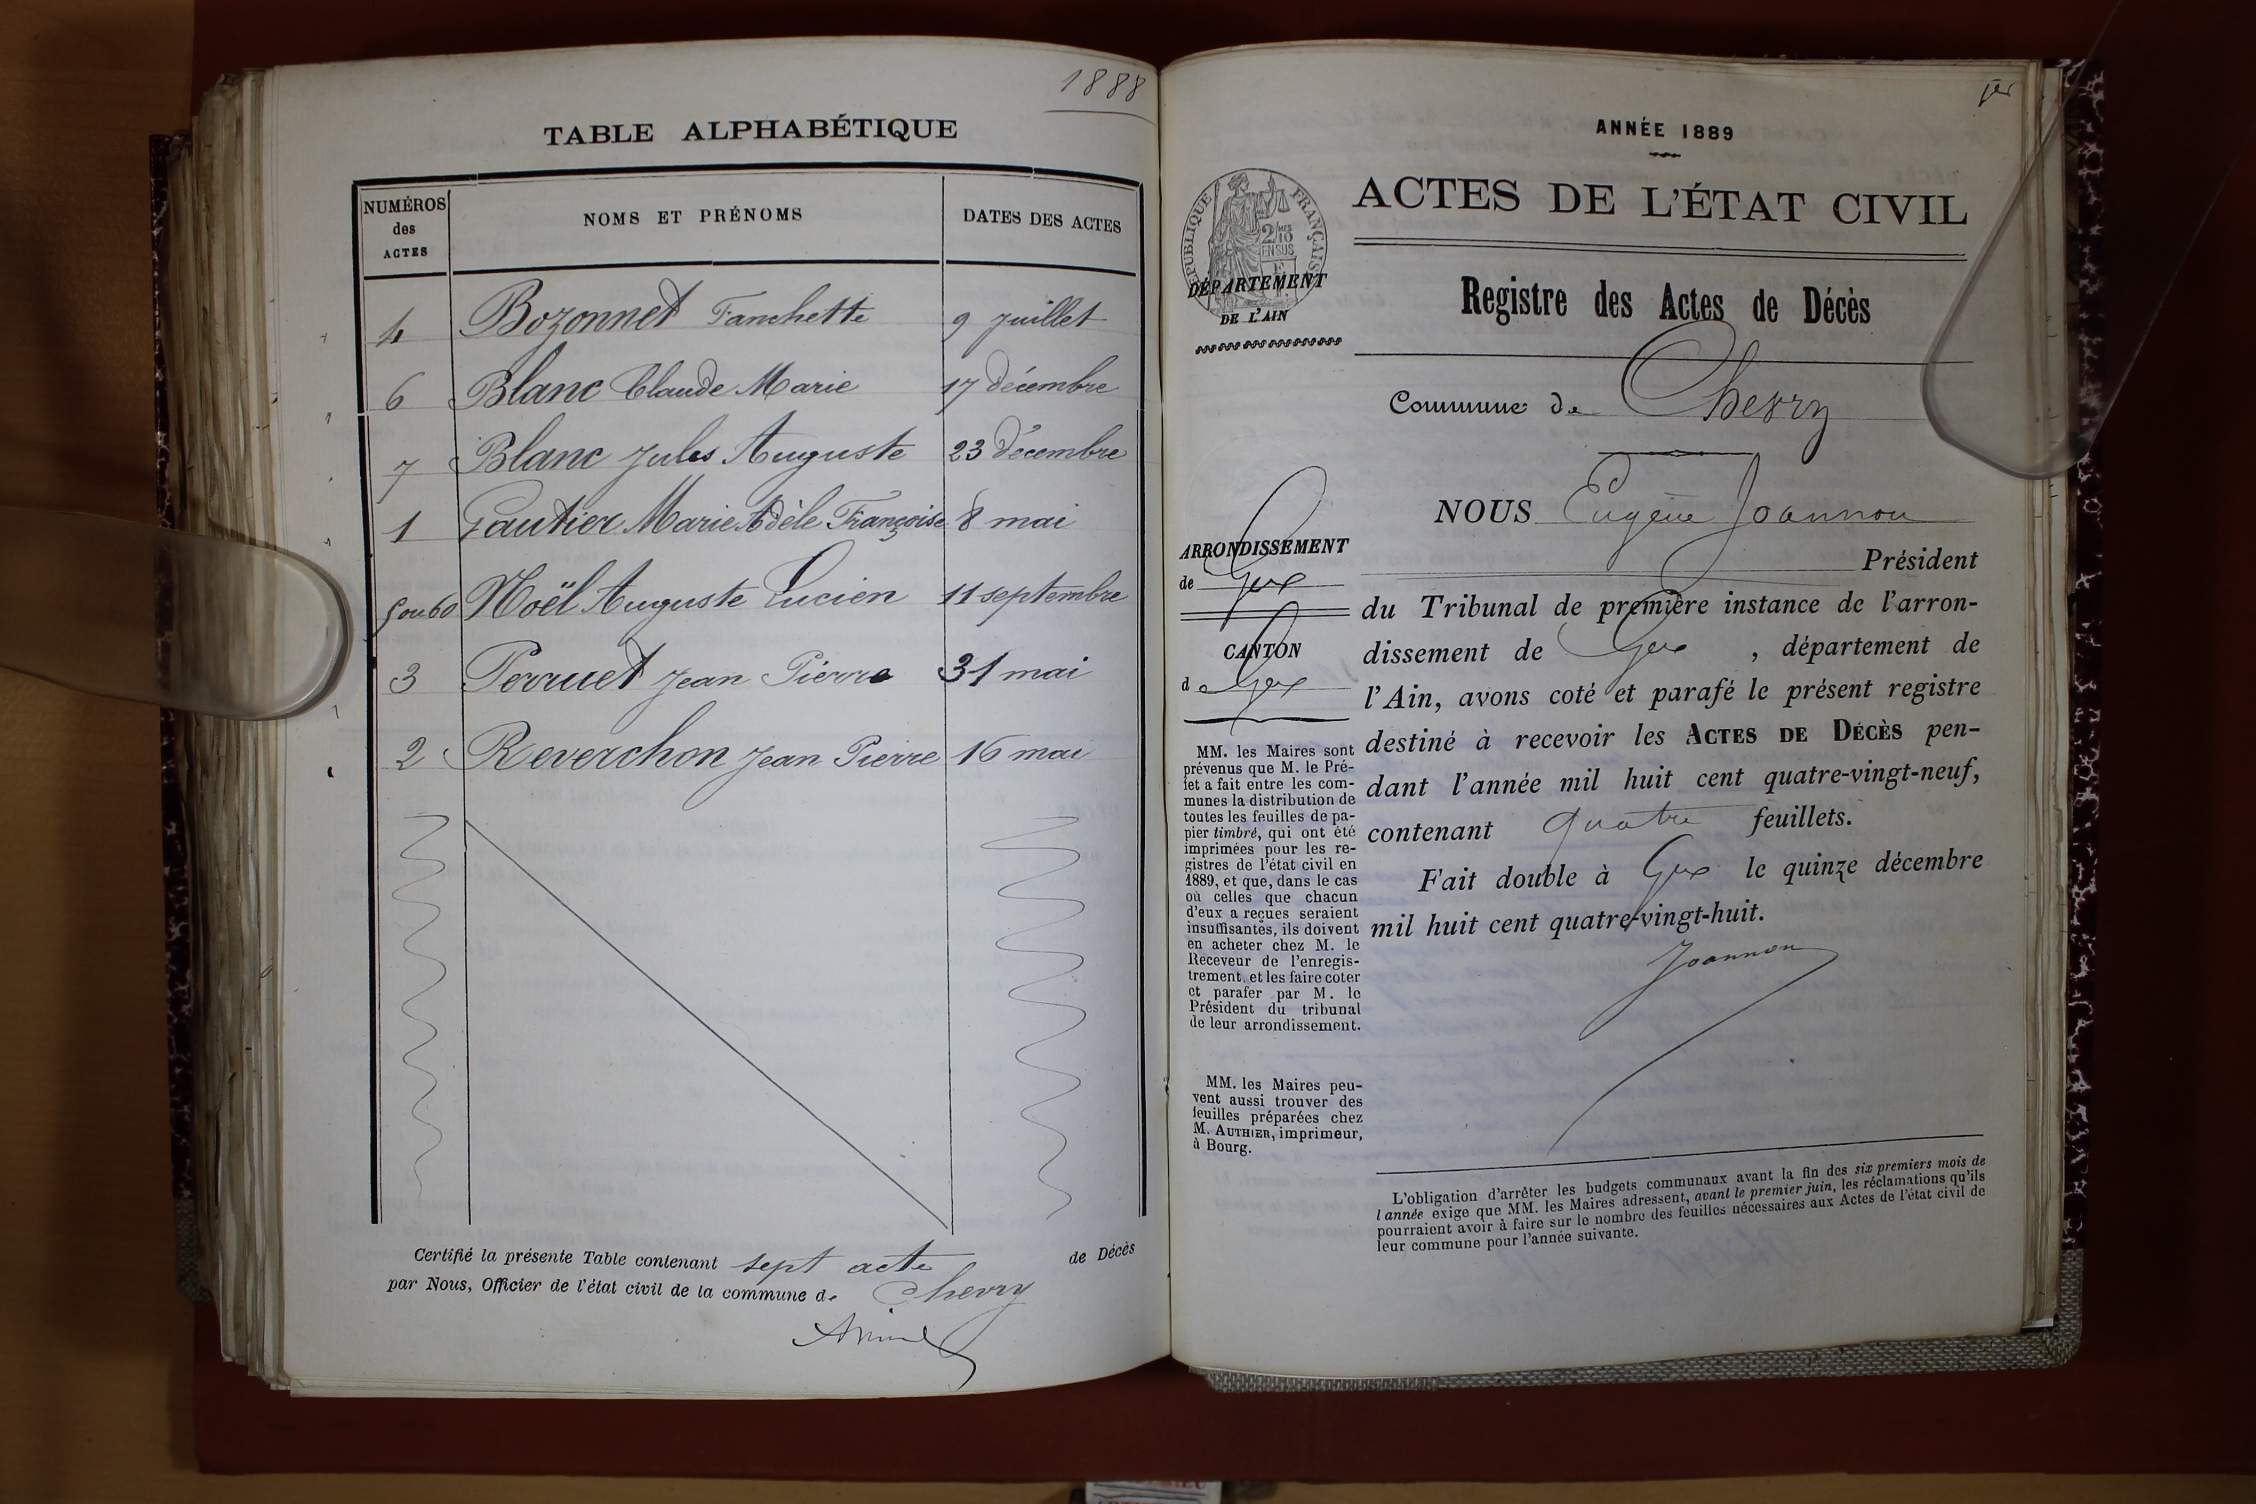 1888
TABLE ALPHABÉTIQUE
NUMÉROS des ACTES NOMS ET PRÉNOMS DATES DES ACTES
4 Bozonnet Fanchette 9 juillet
6 Blanc Claude Marie 17 décembre
7 Blanc Jules Auguste 23 décembre
1 Gautier Marie Adèle Françoise 8 mai
5 ou 60 Noël Auguste Lucien 11 septembre
3 Perruet Jean Pierre 31 mai
2 Reverchon Jean Pierre 16 mai
Certifié la présente Table contenant sept acte de Décès
par Nous, Officier de l'état civil de la commune de Chevry
1er
ANNÉE 1889
ACTES DE L'ÉTAT CIVIL
RÉPUBLIQUE FRANÇAISE
2/10MES
EN SUS
DÉPARTEMENT
DE L'AIN
Registre des Actes de Décès
Commune de Chevry
ARRONDISSEMENT
de Gex
CANTON
de Gex
MM. les Maires sont
prévenus que M. le Pré-
fet a fait entre les com-
munes la distribution de
toutes les feuilles de pa-
pier timbré, qui ont été
imprimées pour les re-
gistres de l'état civil en
1889, et que, dans le cas
où celles que chacun
d'eux a reçues seraient
insuffisantes, ils doivent
en acheter chez M. le
Receveur de l'enregis-
trement, et les faire coter
et parafer par M. le
Président du tribunal
de leur arrondissement.
MM. les Maires peu-
vent aussi trouver des
feuilles préparées chez
M. AUTHIER, imprimeur,
à Bourg.
NOUS Eugène Joannon
Président
du Tribunal de première instance de l'arron-
dissement de Gex, département de
l'Ain, avons coté et parafé le présent registre
destiné à recevoir les ACTES DE DÉCÈS pen-
dant l'année mil huit cent quatre-vingt-neuf,
contenant quatre feuillets.
Fait double à Gex le quinze décembre
mil huit cent quatre-vingt-huit.
Joannon
L'obligation d'arrêter les budgets communaux avant la fin des six premiers mois de
l'année exige que MM. les Maires adressent, avant le premier juin, les réclamations qu'ils
pourraient avoir à faire sur le nombre des feuilles nécessaires aux Actes de l'état civil de
leur commune pour l'année suivante.